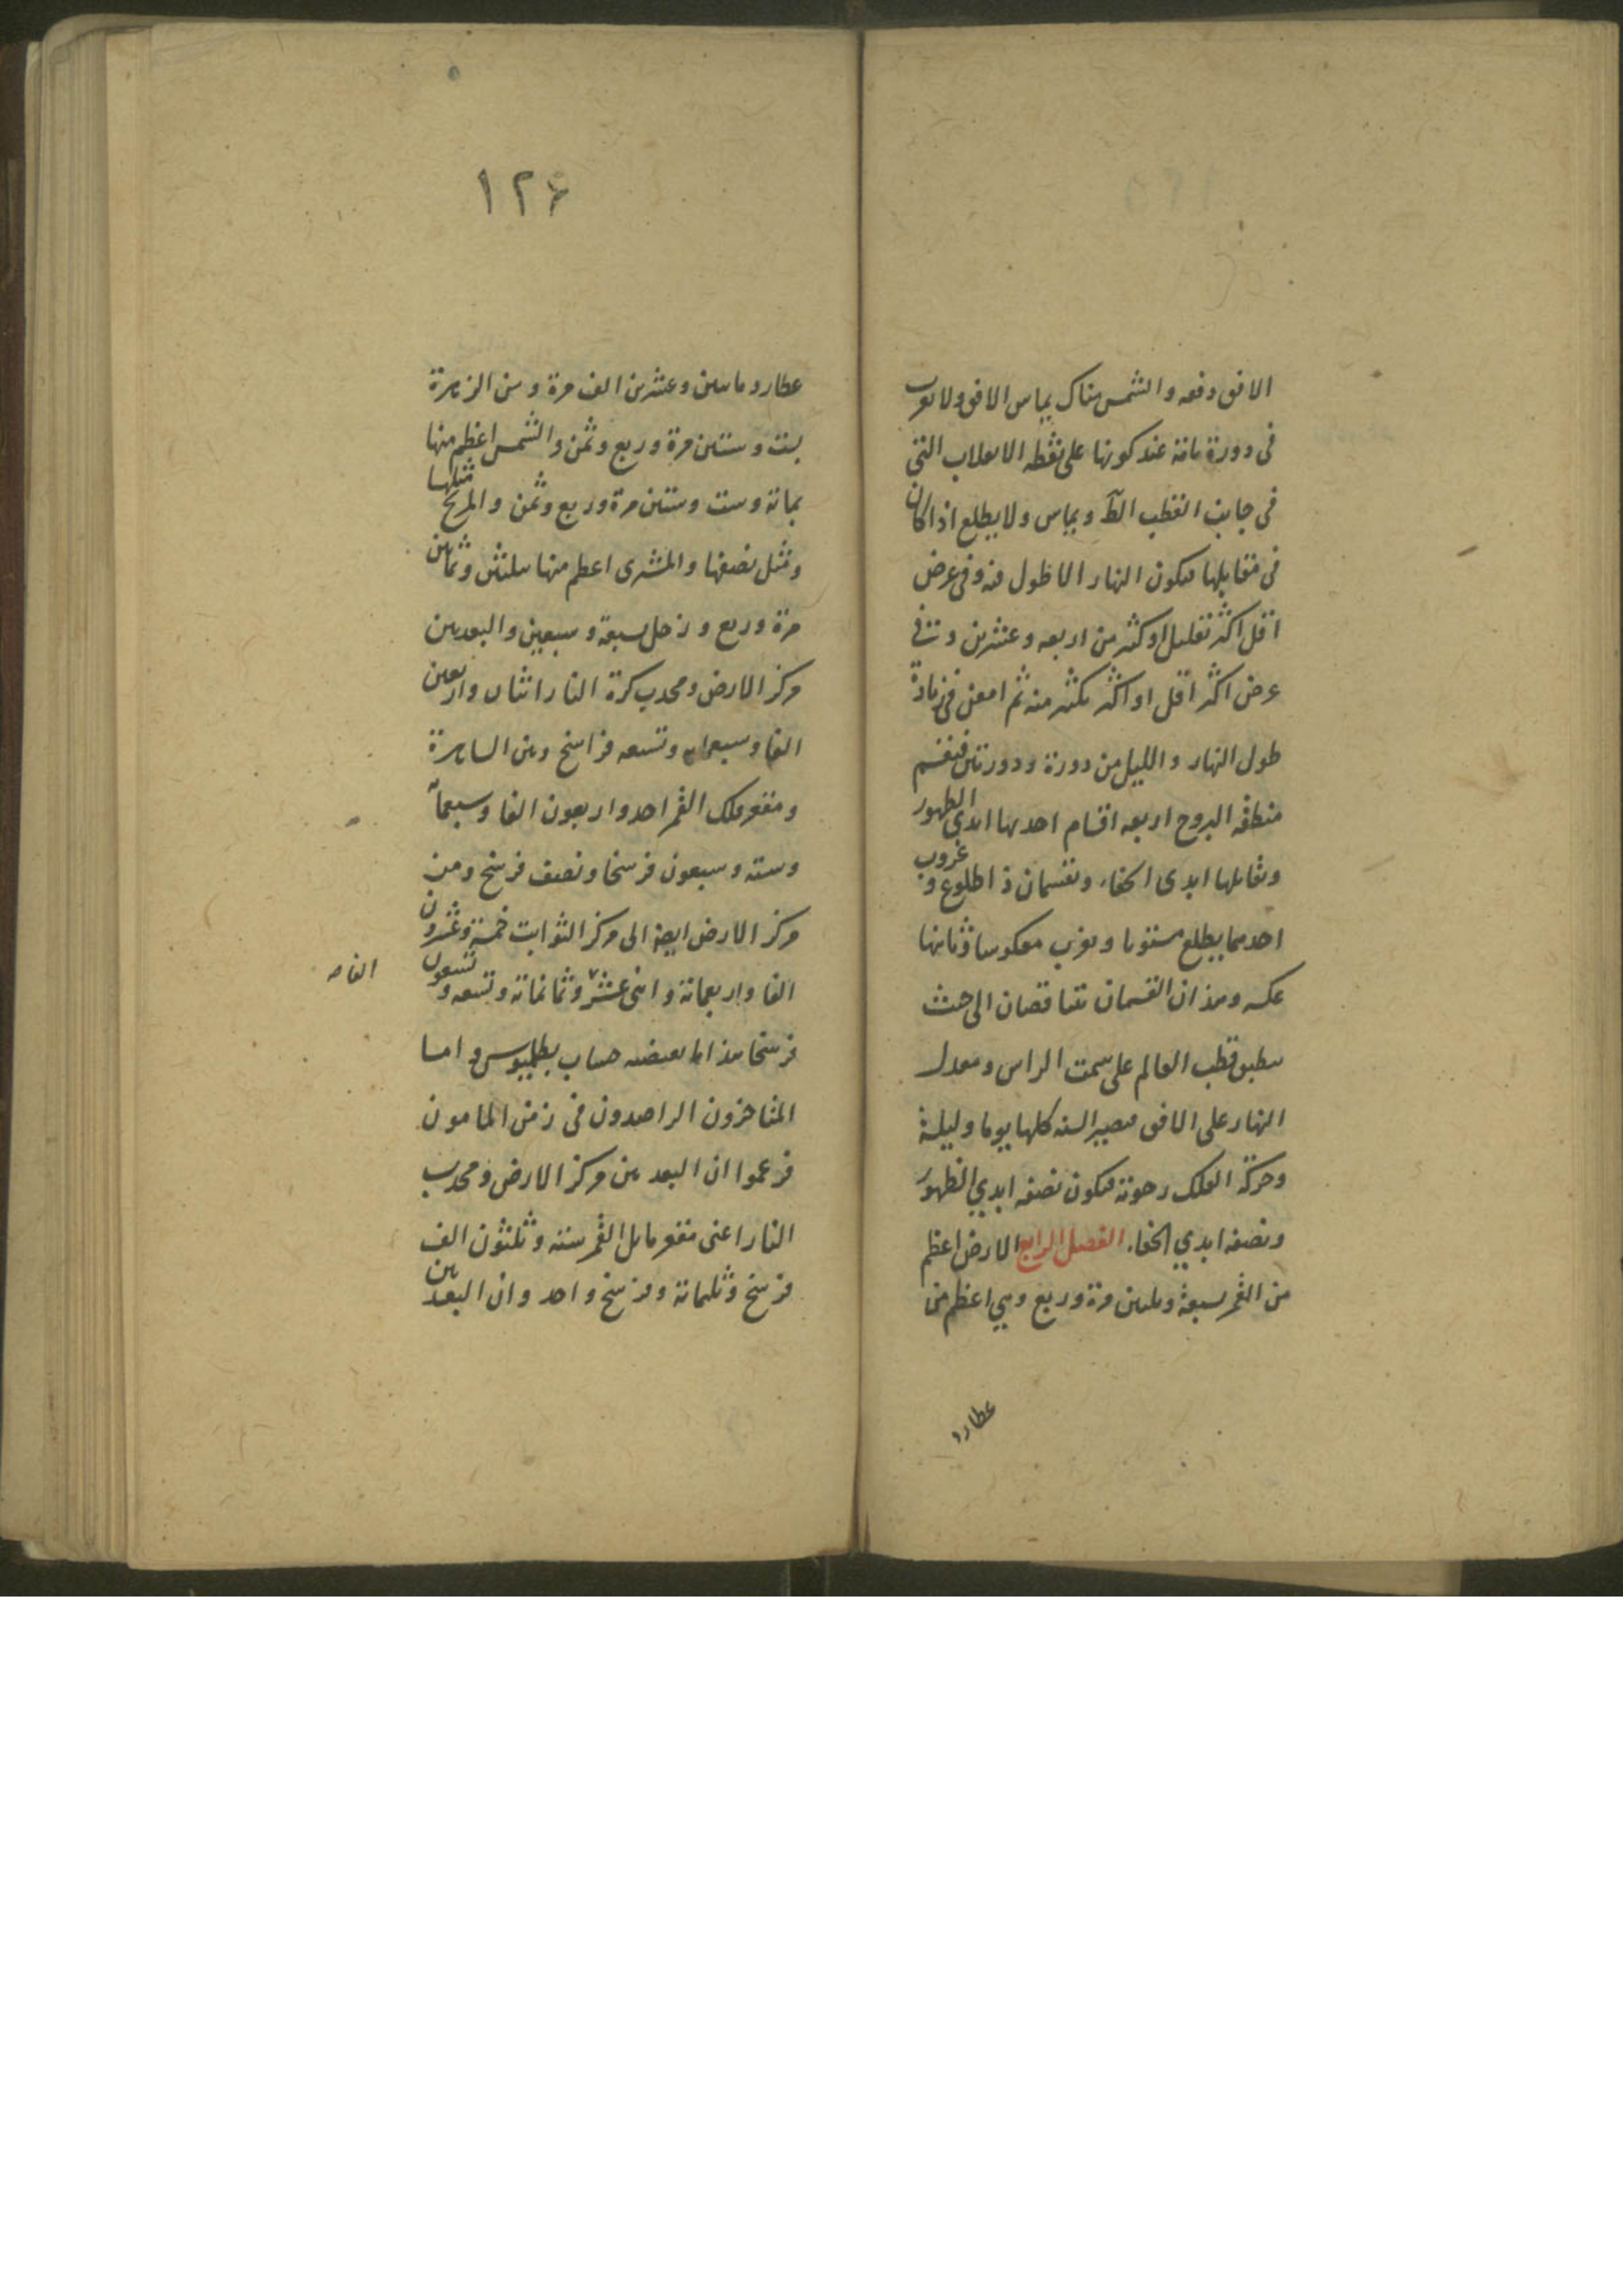 الافق دفعه والشمس هناك يماس الافق ولا تغرب
فى دورة تامة عند كونها على نقطه الانقلاب التى
فى جانب القطب الظ ويماس ولا يطلع اذا كان
فى مقابلها فيكون النهار الاطول منه وفى عرض
اقل اكثر تقليل او كثر من اربعه وعشرين و فى
عرض اكثر اقل او اكثر بكثير منه ثم امعن فى زيادة
طول النهار والليل من دورة ودورتين فينقسم
منطقه البروج اربعه اقسام احدها ابدى الظهور
ومقابلها ابدى الخفاء وقسمان ذا طلوع وغروب
احدهما يطلع مستويا ويغرب معكوسا وثانيها
عكسه وهذان القسمان يتناقصان الى حيث
ينطبق قطب العالم على سمت الراس ومعدل
النهار على الافق فيصير السنه كلها يوما وليلة
وحركة الفلك رحوية فيكون نصفه ابدي الظهور
ونصفه ابدي الخفاء الفصل الرابع الارض اعظم
من القمر سبعة وثلثين مرة وربع وهي اعظم من
عطارد
١٢۶
عطارد ماتين وعشرين الف مرة ومن الزهرة
بست وستين مرة وربع وثمن والشمس اعظم منها
بمائة وست وستين مرة وربع وثمن والمريخ مثلها
ومثل نصفها والمشترى اعظم منها بثلثين وثمانين
مرة وربع وزحل سبعة وسبعين والبعد بين
مركز الارض ومحدب كرة النار اثنان واربعين
الفا وسبعمائه وتسعه فراسخ وبين الساهرة
ومقعر فلك القمر احد واربعون الفا وسبعمائة
وسته وسبعون فرسخا ونصف فرسخ ومن
مركز الارض ايضا الى مركز الثوابت خمسة وعشرون
الفا واربعمائة واثنى عشر وثمانمائة وتسعه وتسعون
الفا
فرسخا هذا ما يقتضيه حساب بطلميوس واما
المتاخرون الراصدون فى زمن المامون
فزعموا ان البعد بين مركز الارض ومحدب
النار اعنى مقعر مايل القمر ستة وثلثون الف
فرسخ وثلثمائة وفرسخ واحد وان البعد بين